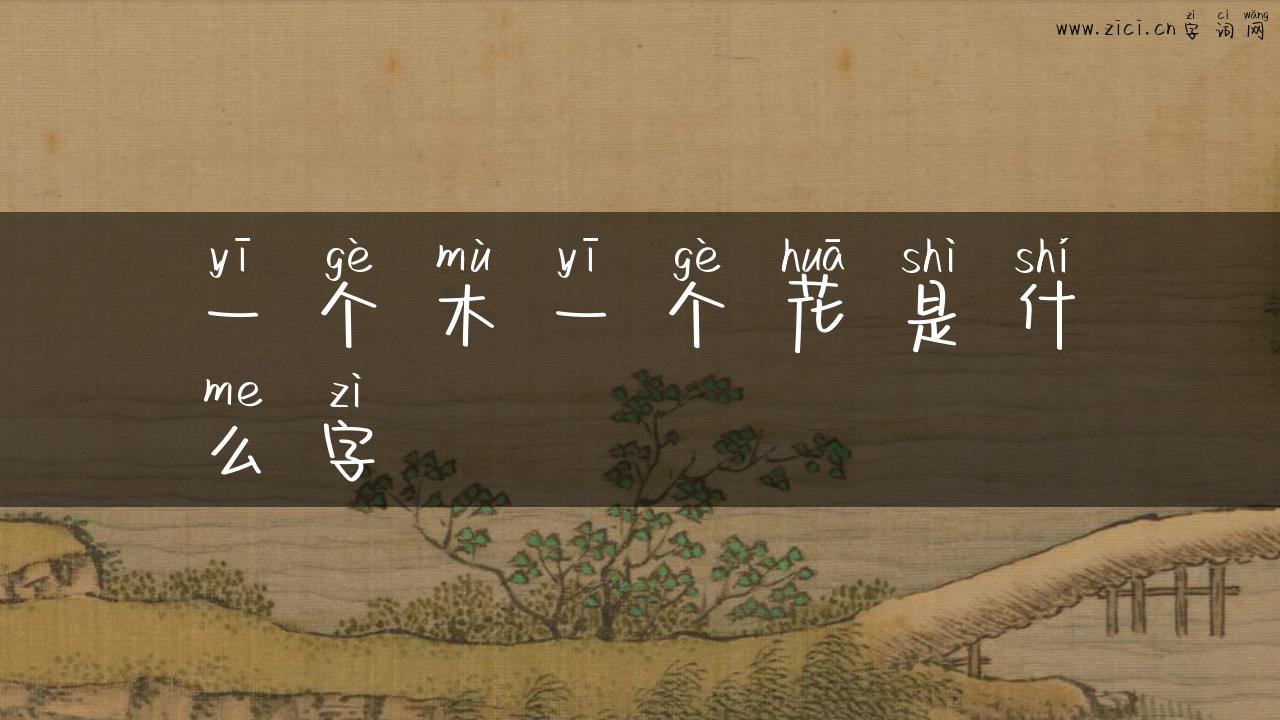 zì cí wǎng
www.zici.cn 字 词 网
yī gè mù yī gè huā shì shí
一 个 木 一 个 花 是 什
me zì
么 字